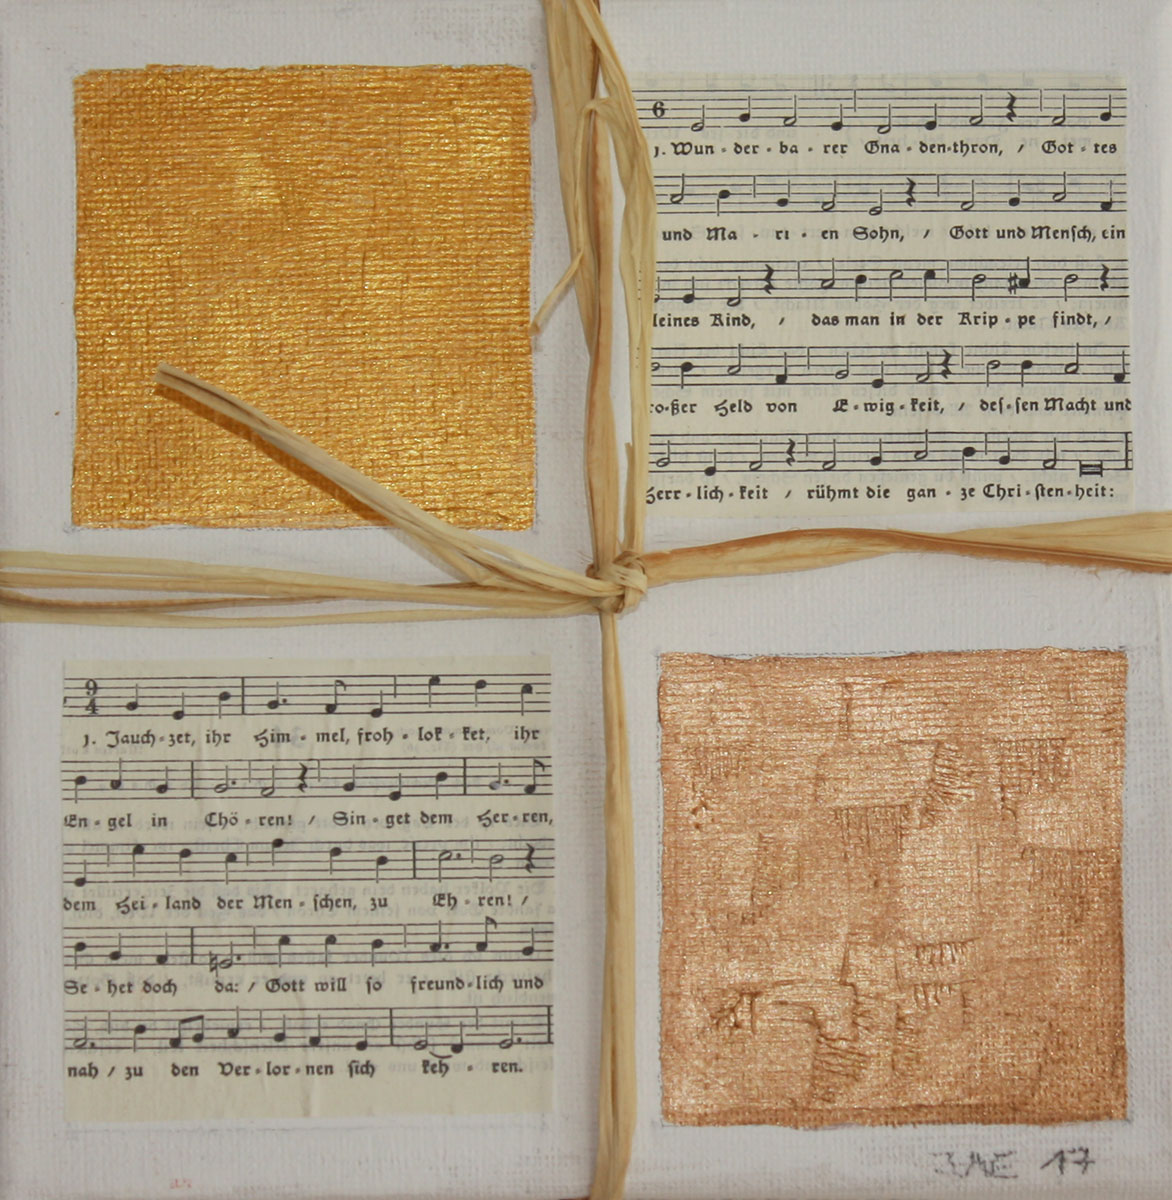 6
1. Wun - der - ba - rer Gna - den-thron, / Got - tes
und Ma - ri - en Sohn, / Gott und Mensch, ein
leines Kind, / das man in der Krip - pe findt, /
ro-ßer Held von E - wig - keit, / des - sen Macht und
Herr - lich - keit / rühmt die gan - ze Chri - sten - heit:
9
4
1. Jauch - zet, ihr Him - mel, froh - lok - ket, ihr
En - gel in Chö - ren! / Sin - get dem Her - ren,
dem Hei - land der Men - schen, zu Eh - ren! /
Se - het doch da: / Gott will so freund - lich und
nah / zu den Ver - lor - nen sich keh - ren.
17